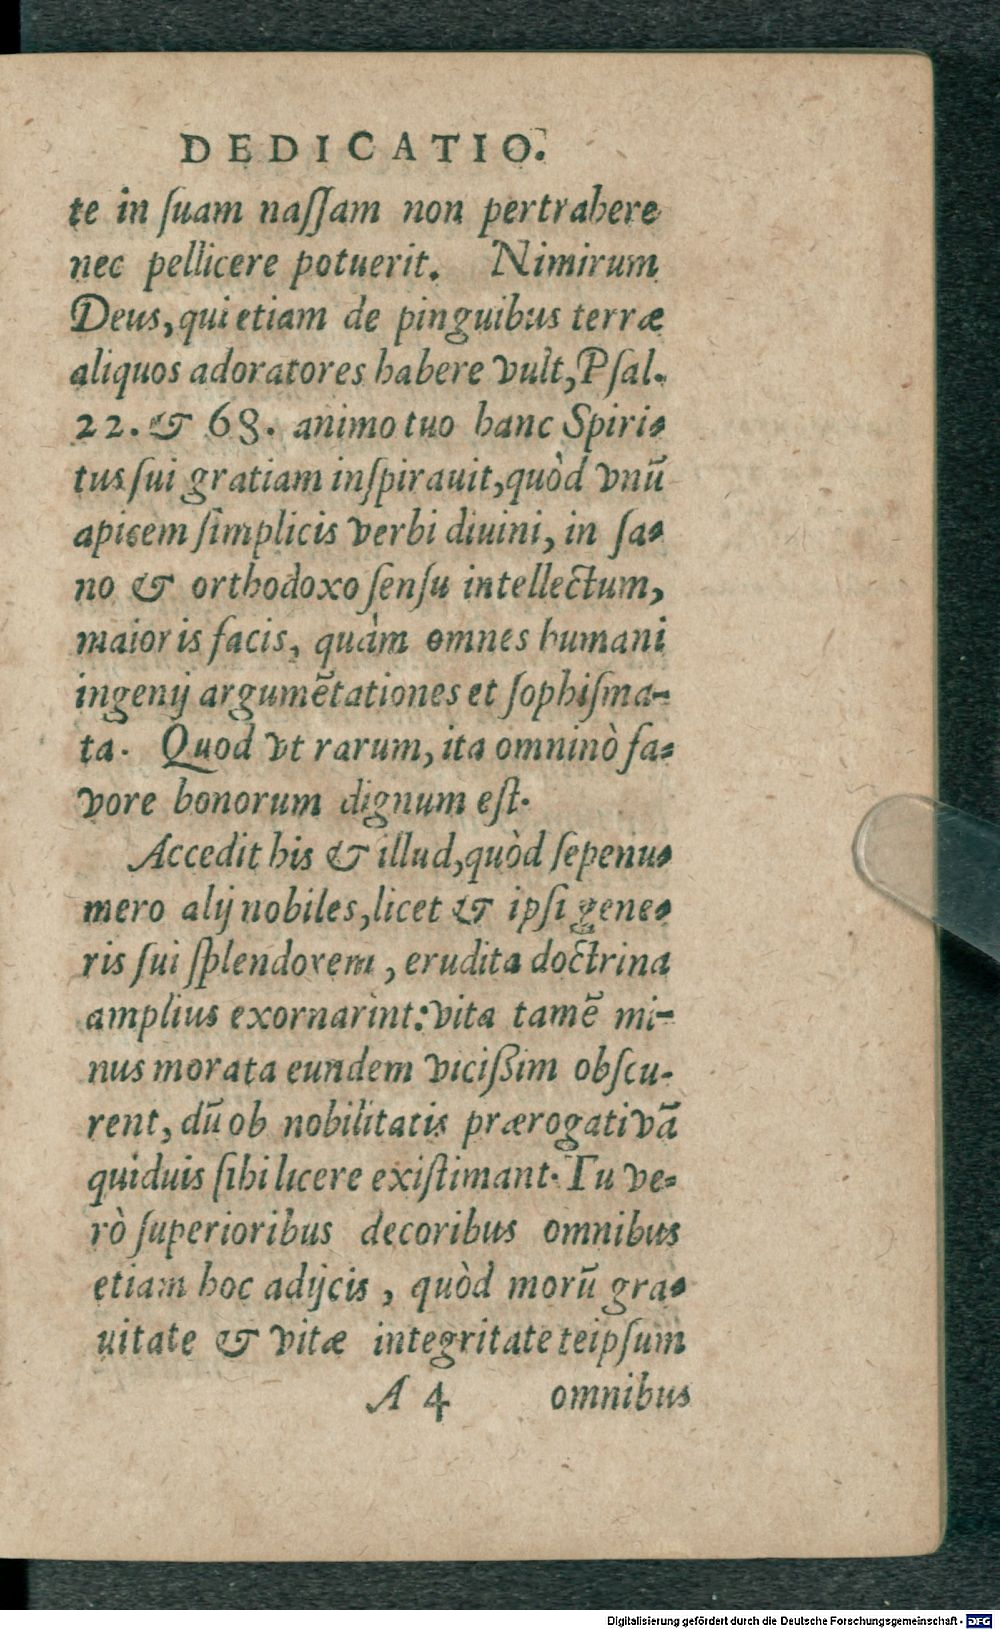 DEDICATIO.
te in ſuam naſſam non pertrahere
nec pellicere potuerit. Nimirum
Deus, qui etiam de pinguibus terræ
aliquos adoratores habere vult, Pſal.
22. & 68. animo tuo hanc Spiri-
tus ſui gratiam inſpirauit, quòd vnū
apicem ſimplicis verbi diuini, in ſa-
no & orthodoxo ſenſu intellectum,
maioris facis, quàm omnes humani
ingenij argumētationes et ſophiſma-
ta. Quod vt rarum, ita omninò fa-
vore bonorum dignum eſt.
Accedit his & illud, quòd ſepenu-
mero alij nobiles, licet & ipſi gene-
ris ſui ſplendorem, erudita doctrina
amplius exornarint: vita tamē mi-
nus morata eundem viciſsim obſcu-
rent, dū ob nobilitatis prærogativā
quiduis ſibi licere exiſtimant. Tu ve-
rò ſuperioribus decoribus omnibus
etiam hoc adijcis, quòd morū gra-
uitate & vitæ integritate teipſum
A 4 omnibus
Digitalisierung gefördert durch die Deutsche Forschungsgemeinschaft - DFG